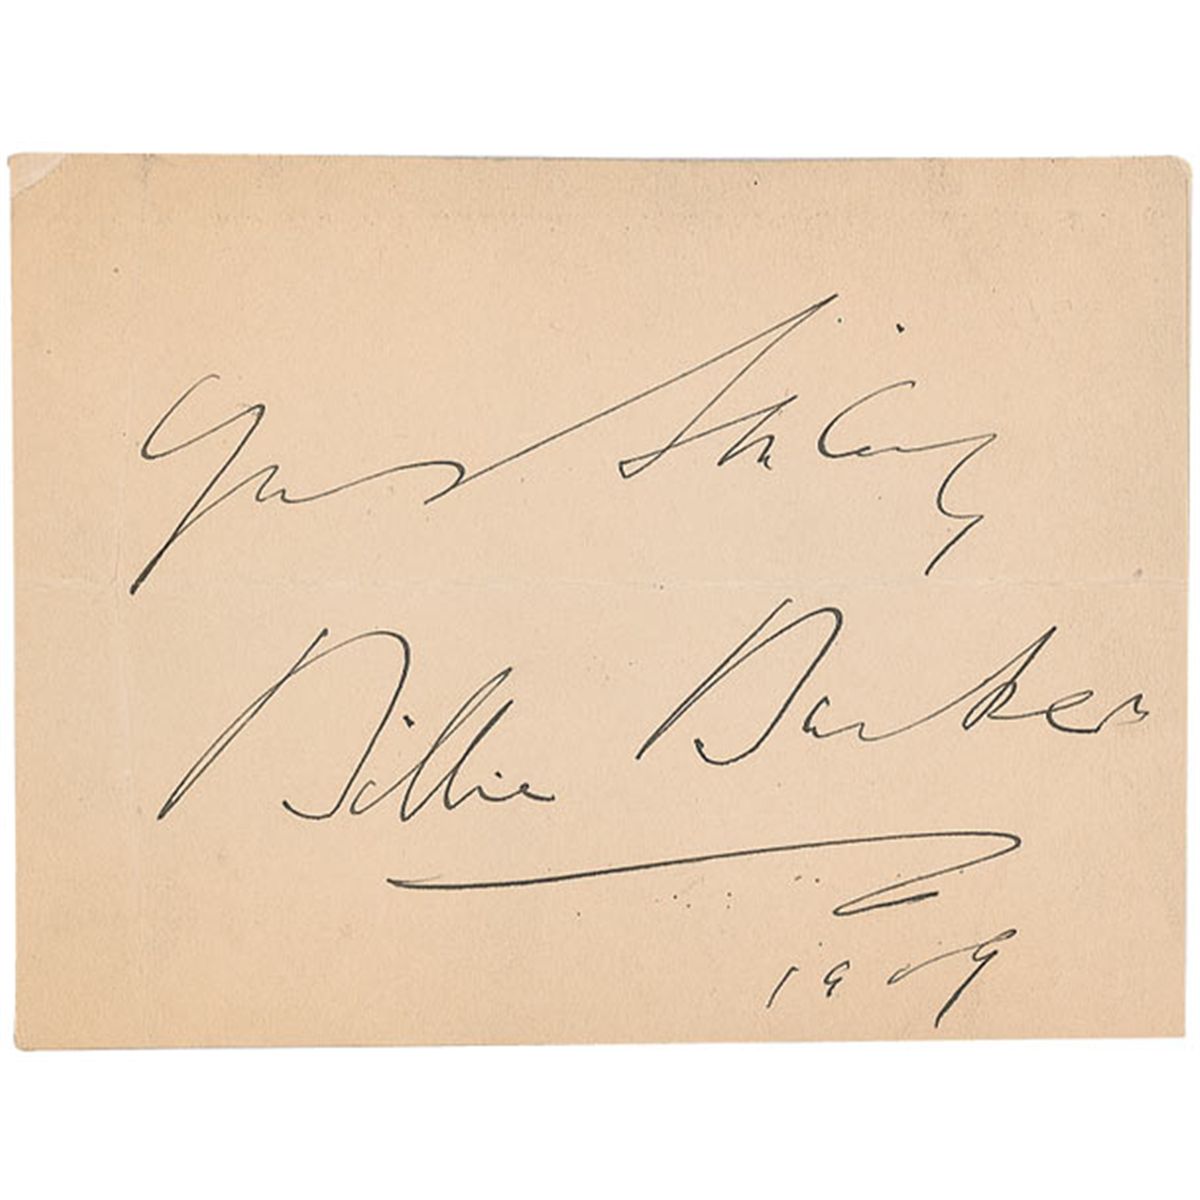 Yours Sincerely
Billie Barker
1909